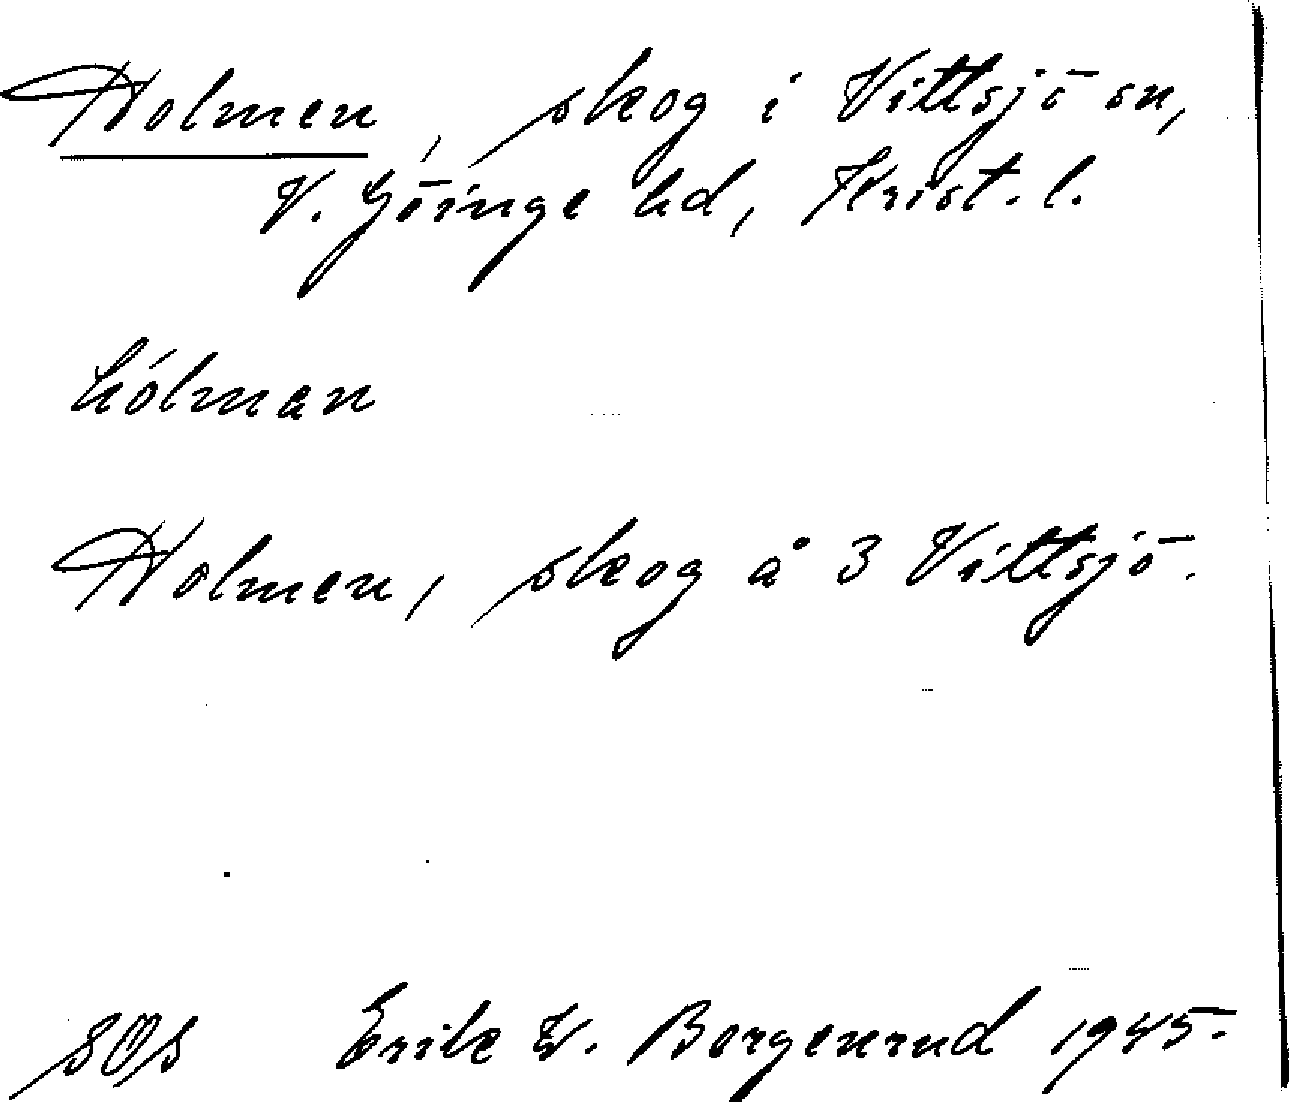 Holmen, skog i Vittsjö sn,
V. Göinge hd, Krist. l.
hólman
Holmen, skog å 3 Vittsjö.
SOS Erik W. Borgenrud 1945.